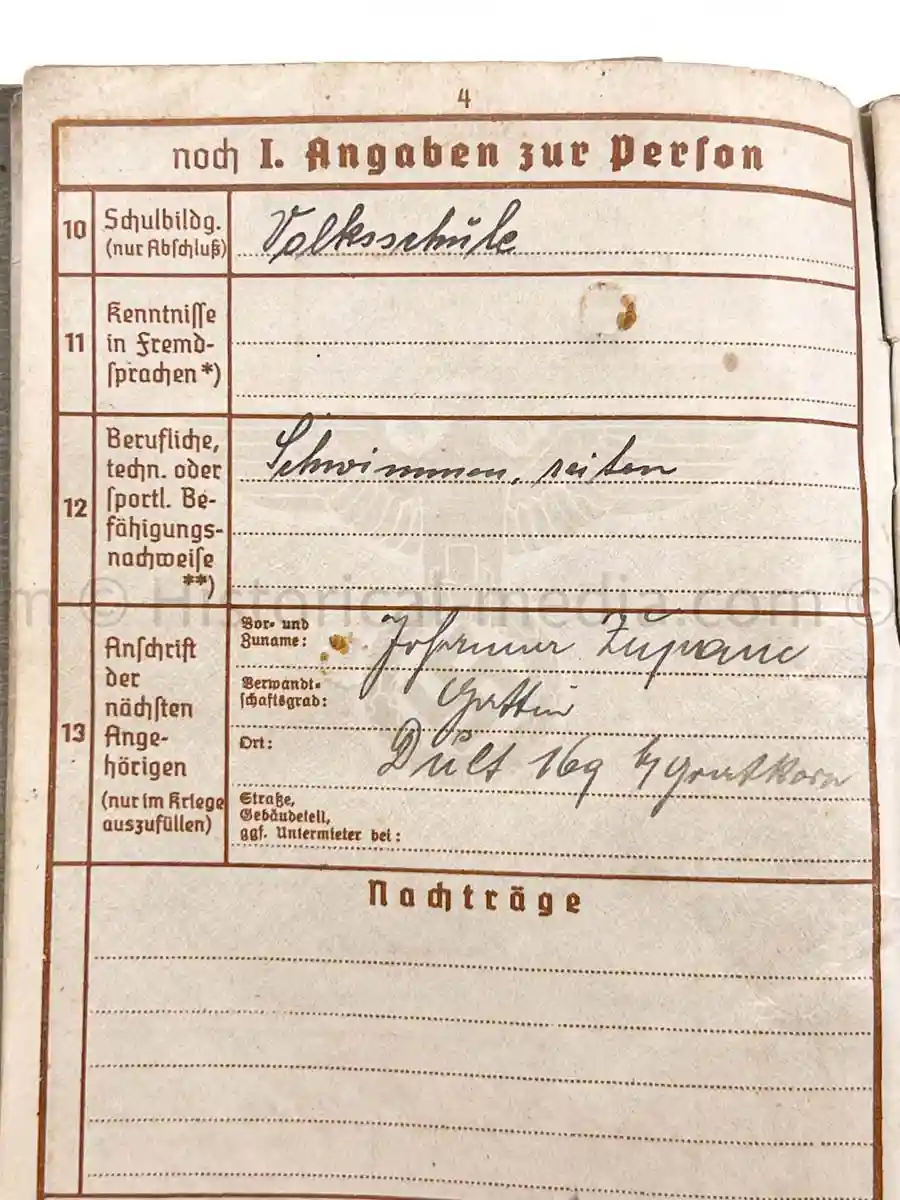 4
noch I. Angaben zur Person
10
Schulbildg.
(nur Abschluß)
Volksschule
11
Kenntnisse
in Fremd-
sprachen *)
12
Berufliche,
techn. oder
sportl. Be-
fähigungs-
nachweise
**)
Schwimmen, reiten
m © Historical-media.com ©
13
Anschrift
der
nächsten
Ange-
hörigen
(nur im Kriege
auszufüllen)
Vor- und
Zuname:
Zupanc
Verwandt-
schaftsgrad:
Gattin
Ort:
Dult 169 Gratkorn
Straße,
Gebäudeteil,
ggf. Untermieter bei:
Nachträge